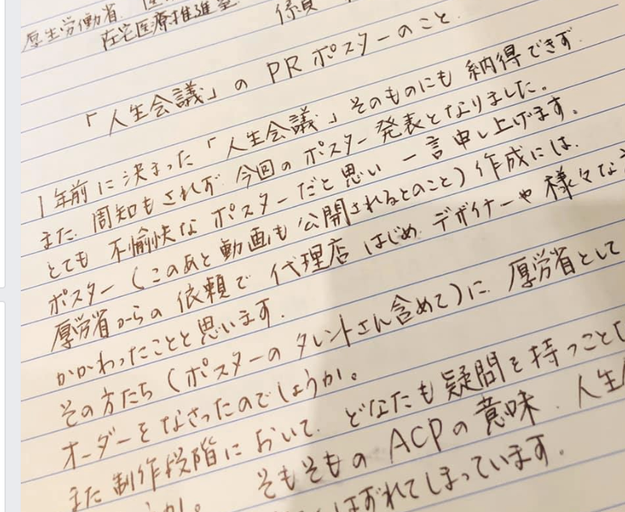 厚生労働省
在宅医療推進室 係
「人生会議」のPRポスターのこと
1年前に決まった「人生会議」そのものにも納得できず
また周知もされず、今回のポスター発表となりました。
とても不愉快なポスターだと思い一言申し上げます。
ポスター(このあと動画も公開されるとのこと)作成には、
厚労省からの依頼で代理店はじめ、デザイナーや様々な
かかわったことと思います。
その方たち(ポスターのタレントさん含めて)に、厚労省として
オーダーをなさったのでしょうか。
また制作段階において、どなたも疑問を持つこと
か。そもそものACPの意味、人生
はずれてしまっています。